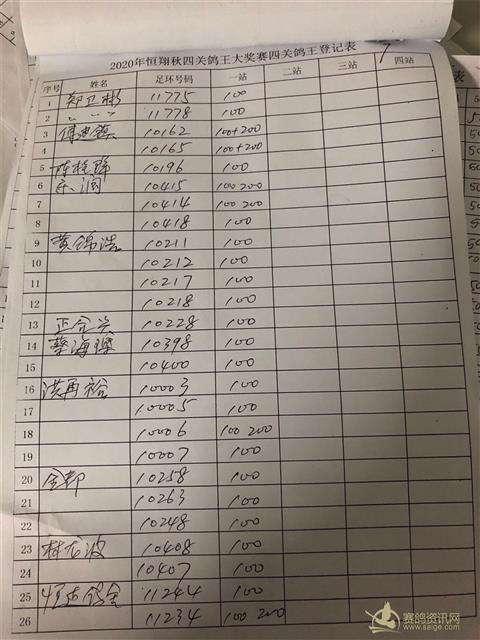 2020年恒翔秋四关鸽王大奖赛四关鸽王登记表 7
序号 姓名 足环号码 一站 二站 三站 四站
1 郑卫彬 11775 100
2 〃 〃 11778 100
3 10162 100+200
4 10165 100+200
5 10196 100
6 10415 100 200
7 10414 100 200
8 10418 100
9 黄锦浩 10211 100
10 10212 100
11 10217 100
12 10218 100
13 正合兴 10228 100
14 蔡海 10398 100
15 10400 100
16 洪再裕 10003 100
17 10005 100
18 10006 100 200
19 10007 100
20 金都 10258 100
21 10263 100
22 10248 100
23 林龙波 10408 100
24 10407 100
25 恒达鸽舍 11244 100
26 11234 100 200
赛鸽资讯网
www.saige.com